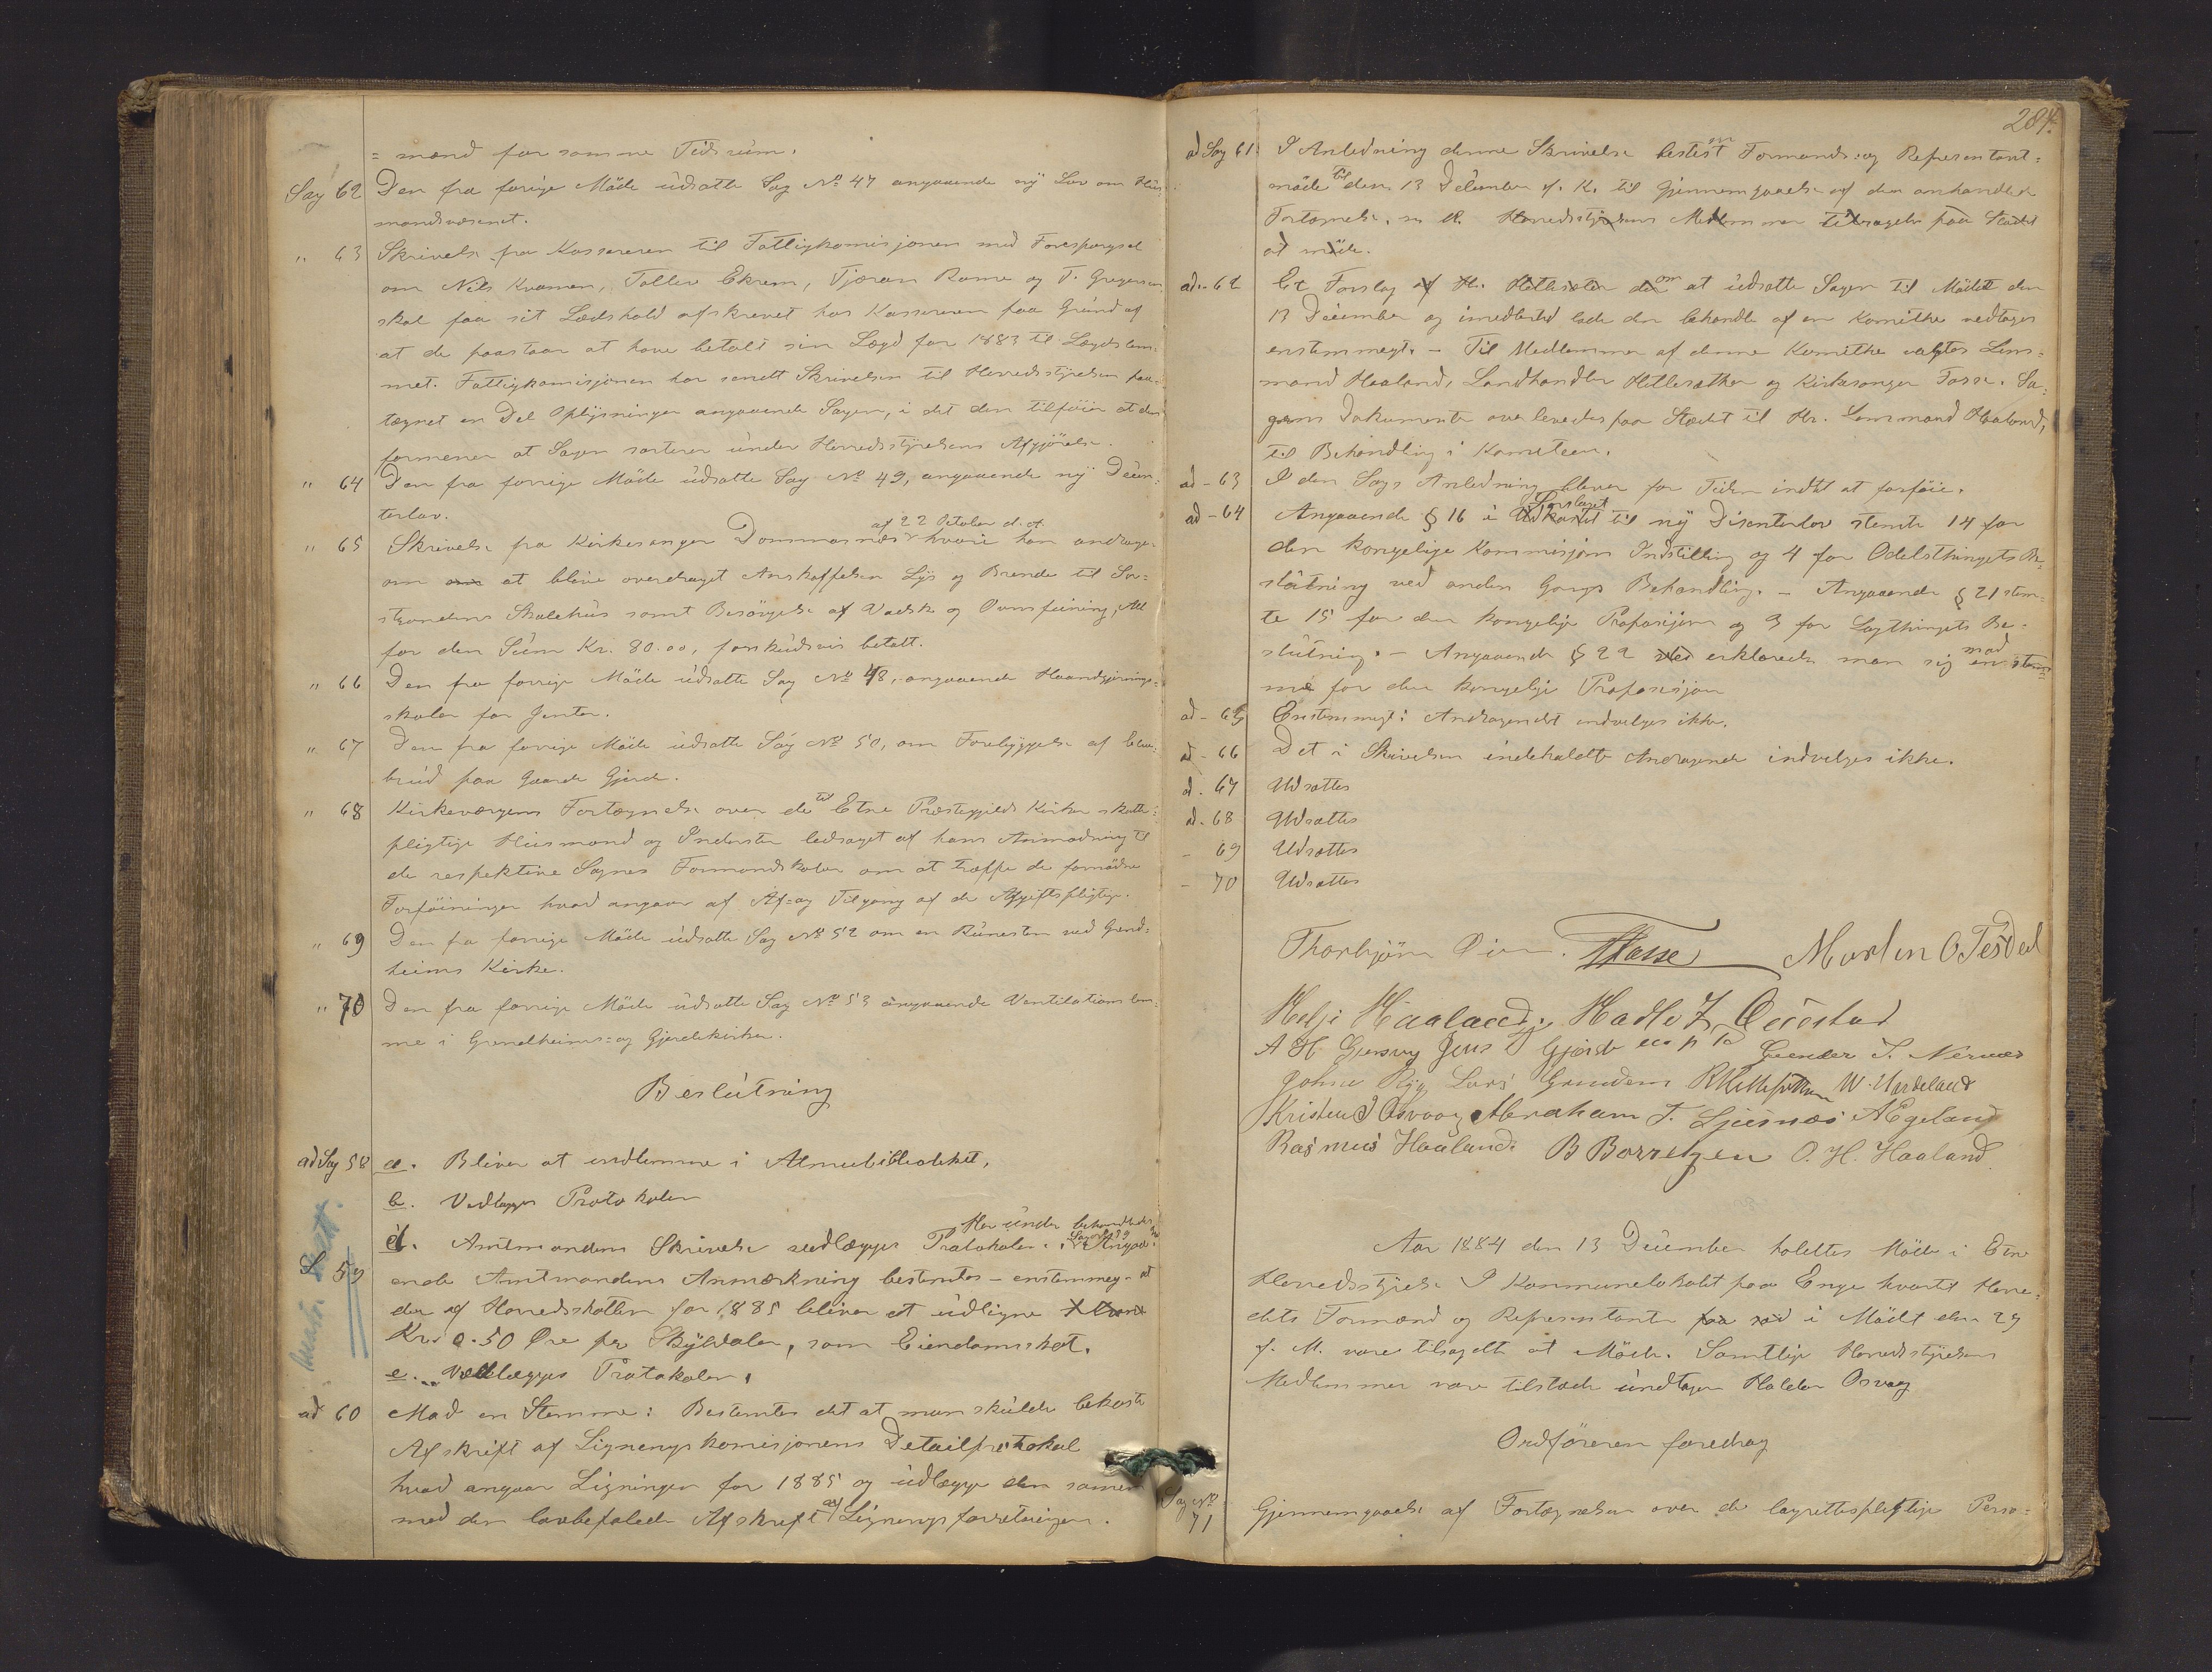 = mænd for samme Tidsrum.
Sag 62 Den fra forige Möde udsatte Sag No 47 angaaende ny Lov om Hus-
mandsvæsenet.
" 63 Skrivelse fra Kassereren til Fattigkomisjonen med Forespørgsel
om Nils Kvamen, Tollev Ekrem, Tjæran Rame og T. Gregersen
skal faa sit Lædshold afskrevet hos Kassereren paa Grund af
at de paastaar at have betalt sin Lægd for 1883 til Lægdslem-
met. Fattigkomisjonen har sendt Skrivelsen til Herredsstyrelsen paa-
tegnet en Del Oplysninger angaaende Sagen, i det den tilföier at den
formener at Sagen sorterer under Herredsstyrelsens Afgjörelse.
" 64 Den fra forrige Möde udsatte Sag No 49, angaaende ny Disen-
terlov.
" 65 Skrivelse fra Kirkesanger Dommasnes af 22 October d. A. hvori han andrager
om at blive overdraget Anskaffelsen Lys og Brende til Sør-
strandens Skolehus samt Besörgelse af Vadsk og Ovnsfeining, Alt
for den Sum Kr. 80.00, forskudsvis betalt.
" 66 Den fra forrige Möde udsatte Sag No 48, angaaende Haandgjernings-
skoler for Jenter.
" 67 Den fra forrige Möde udsatte Sag No 50, om Forebyggelse af
brud paa Gaarde Gjerde.
" 68 Kirkeværgens Fortegnelse over de til Etne Præstegjelds Kirker skatte-
pligtige Husmænd og Inderster ledsaget af hans Anmodning til
de respektive Sognes Formandskaber om at træffe de fornödne
Forföininger hvad angaar af Af- og Tilgang af de Afgiftspligtige.
" 69 Den fra forrige Möde udsatte Sag No 52 om en Runesten ved Grind-
heims Kirke.
" 70 Den fra forrige Möde udsatte Sag No 53 angaaende Ventilationslem-
me i Grindheims- og Gjerdekirken.
Beslutning
ad Sag 58 a. Bliver at indlemme i Almuebibliotheket.
b. Vedlægges Protokolen
d. Amtmandens Skrivelse vedlægges Protokolen. Her under behandledes Sag No 59 Angaa-
S 59 ende Amtmandens Anmærkning bestemtes - enstemmeg - at
der af Herredsskatten for 1885 bliver at udligne
Kr. 0.50 Øre per Skyldaler, som Eiendomsskat.
e. Vedlægges Protokolen.
ad 60 Mod en Stemme: Bestemtes det at man skulde bekoste
Afskrift af Ligningskomisjonens Detailprotokol
hvad angaar Ligningen for 1885 og udlægge den sammen
med den lovbefalede Afskrift af Ligningsforretningen.
284.
ad Sag 61 I Anledning denne Skrivelse bestemtes Formands- og Representant-
möde til den 13 December f. K. til Gjennemgaaelse af den omhandlede
Fortegnelse. Herredsstyrelsens Medlemmer tilsagdes paa Stedet
at möde.
ad - 62 Et Forslag af Hr. Hetlesæter om at udsætte Sagen til Mödet den
13 December og imedlertid lade den behandle af en Komithe vedtages
enstemmegt. - Til Medlemmer af denne Komithe valgtes Lens-
mand Haaland, Landhandler Hetlesæther og Kirkesanger Fasse. Sa-
gens Dokumenter overleveredes paa Stedet til Hr. Lensmand Haaland,
til Behandling i Komiteen.
ad - 63 I den Sags Anledning bliver for Tiden indtet at forföie.
ad - 64 Angaaende § 16 i Forslaget til ny Disenterlov stemte 14 for
den kongelige Kommisjons Indstilling og 4 for Odelsthingets Be-
slutning ved anden Gangs Behandling. - Angaaende § 21 stem-
te 15 for den kongelige Proposisjon og 3 for Lagthingets Be-
slutning. - Angaaende § 22 erklærede man sig med en stem-
me for den kongelige Proposisjon
ad - 65 Enstemmegt: Andragendet indvelges ikke.
ad - 66 Det i Skrivelsen indeholdte Andragende indvelges ikke.
ad. 67 Udsættes
ad. 68 Udsættes
- 69 Udsættes
- 70 Udsættes
Thorbjörn Øien. Fasse Morten O Tesdal
Helje Haaland Hadle Questad
A H Grinsvog Jens Gjærde Gunder T. Nernæs
Johne Rygg Lars Grindem R Hetlesæther W. Hardeland
Kristen J Osvaag Abraham J. Ljusnæs A Egeland
Rasmus Haaland. B Borretzen O. H. Haaland.
Aar 1884 den 13 December holdtes Möde i Etne
Herredsstyrelse I Kommunelokalet paa Enge hvortil Herre-
dets Formænd og Representanter i Mödet den 29
f. M. vare tilsagdte at Möde. Samtlige Herredsstyrelsens
Medlemmer vare tilstæde undtagen Halder Osvaag
Ordföreren foredrog
Sag No
71 Gjennemgaaelse af Fortegnelsen over de lagrettespligtige Perso-